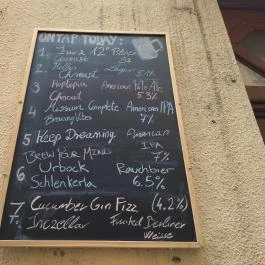 ON TAP TODAY:
1. 12° Pilsner
2. Lager 5.1%
Chroust
3 Hoptopia American Pale Ale
Chroust 5.3%
4 Mission Complete American IPA
Brewing Vibes 7%
5 Keep Dreaming American
IPA
Brew Your Mind 7%
6 Urbock Rauchbier
Schlenkerla 6.5%
7 Cucumber Gin Fizz (4.2%)
Inczellar Fruited Berliner
Weisse